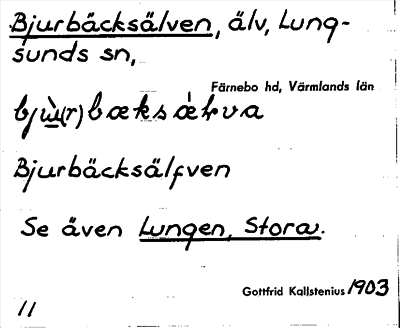 Bjurbäcksälven, älv, Lung-
sunds sn,
Färnebo hd, Värmlands län
Bjurbäcksälfven
Se även Lungen, Stora.
Gottfrid Kallstenius 1903
11